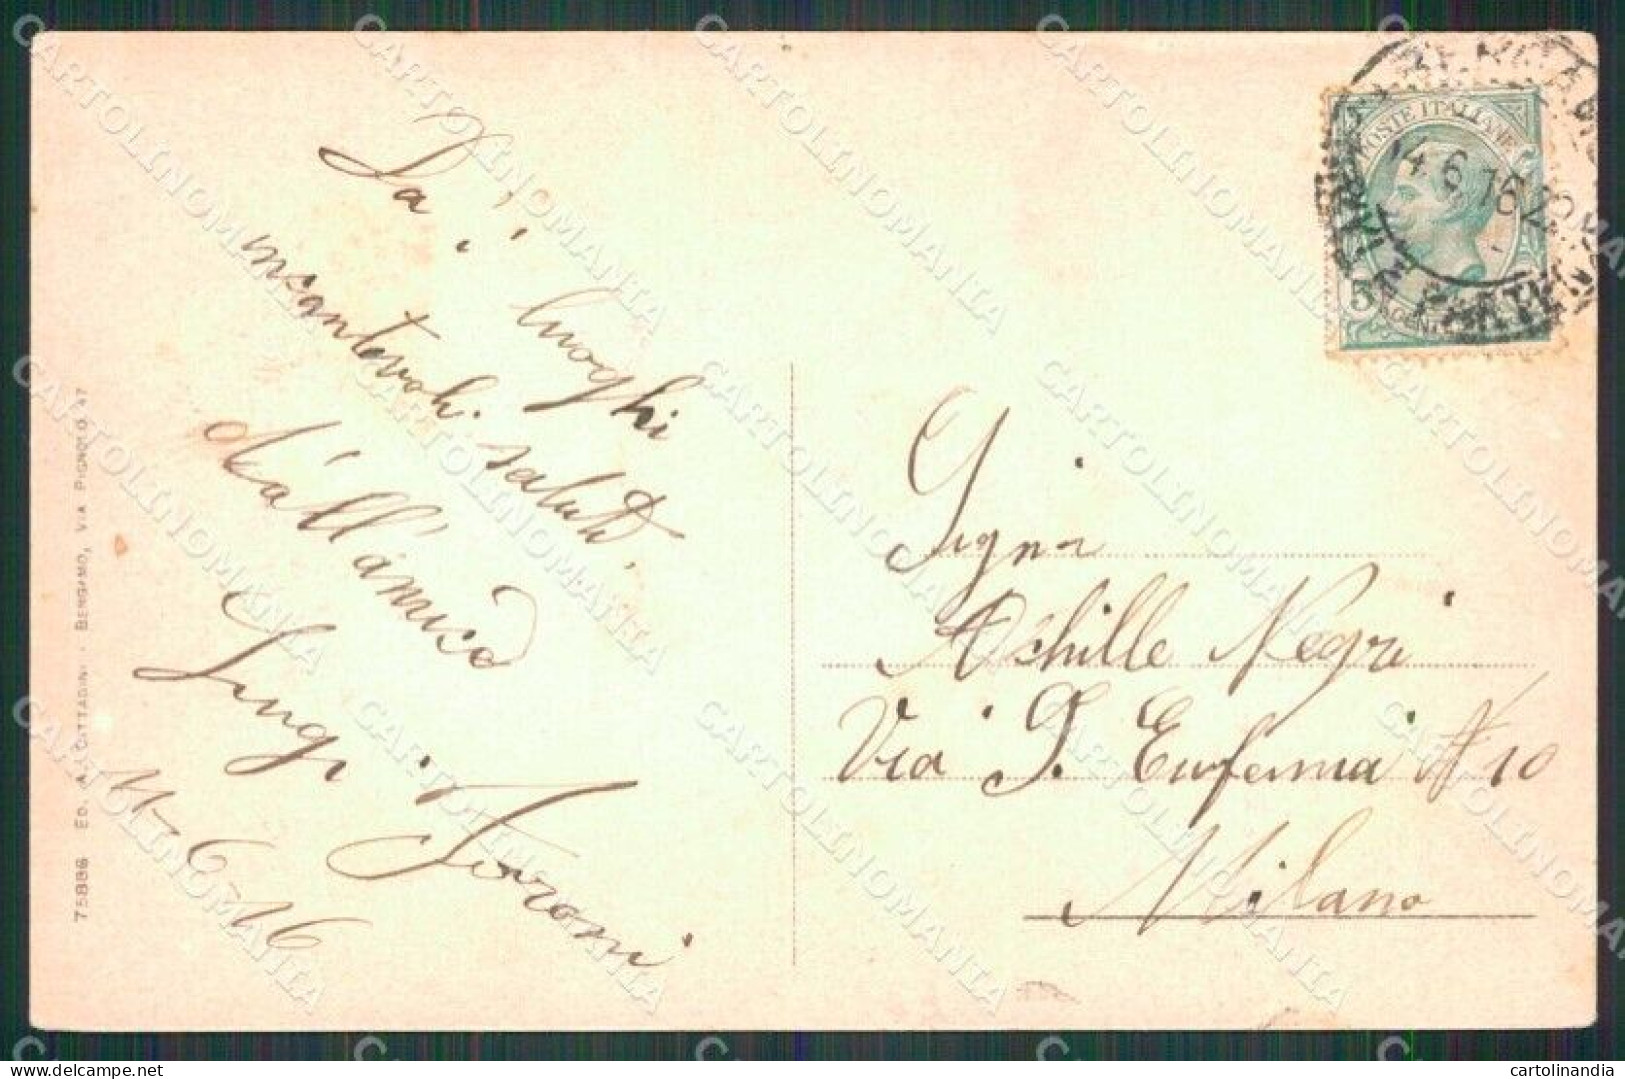 Da i luoghi
incantevoli. saluti,
dall'amico
Luigi Foroni
11-6-16
75886 ED. A. CITTADINI - BERGAMO, VIA PIGNOLO, 47
POSTE ITALIANE
5
14.6.16
Signor
Achille Negri
Via S. Eufemia N 10
Milano
CARTOLINOMANIA
cartolinandia